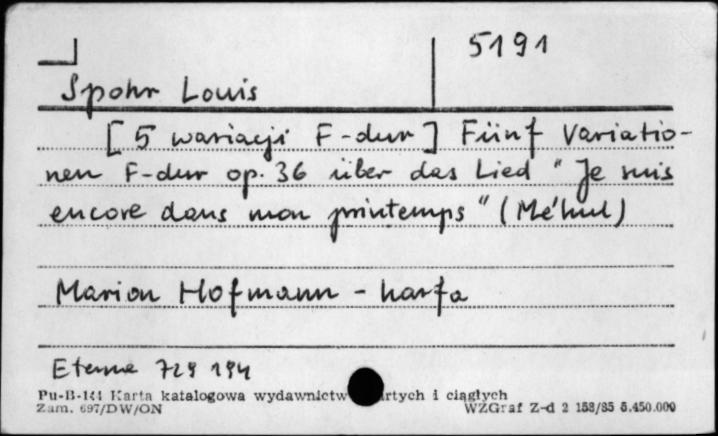 5191
Spohr Louis
[5 wariacji F-dur] Fünf Variatio-
nen F-dur op. 36 über das Lied "Je suis
encore dans mon printemps" (Méhul)
Marion Hofmann - harfa
Eterna 729 194
Pu-B-144 Karta katalogowa wydawnictw rtych i ciągłych
Zam. 697/DW/ON WZGraf Z-d 2 158/85 5.450.000